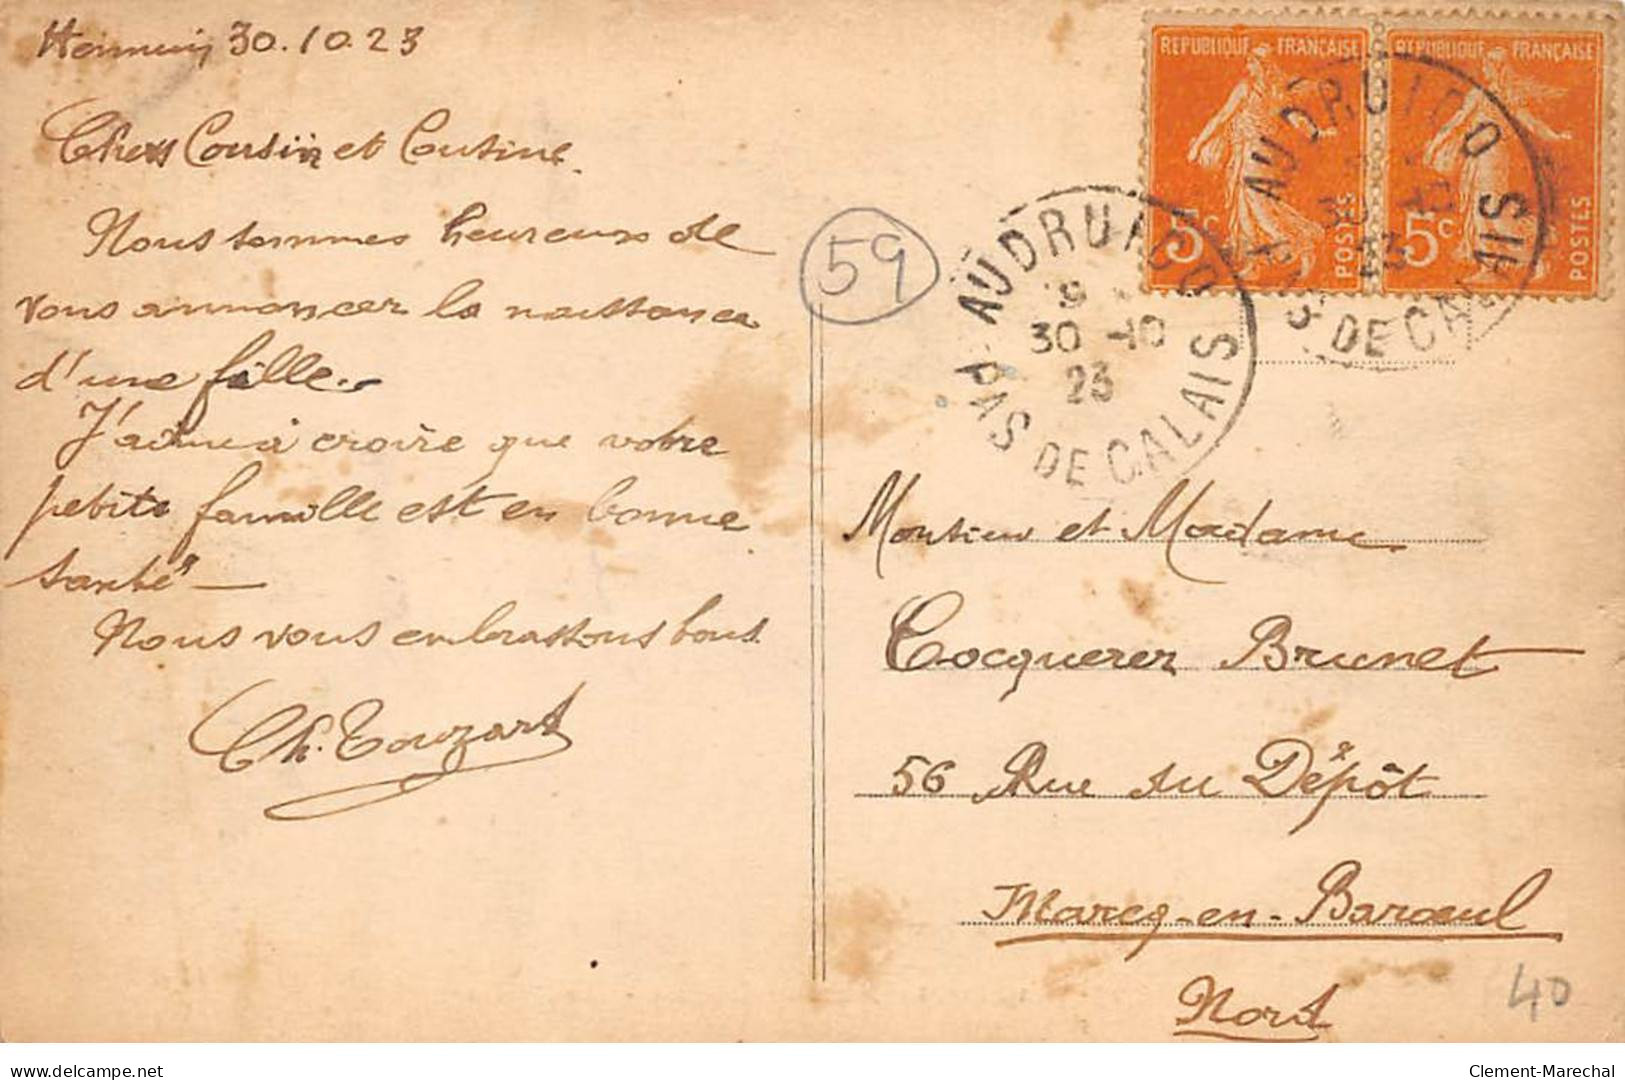 30.10.23
Chers Cousin et Cousine
Nous sommes heureux de
vous annoncer la naissance
d'une fille.
J'aime à croire que votre
petite famille est en bonne
santé —
Nous vous embrassons tous
Ch. Touzart
59
REPUBLIQUE FRANÇAISE
5c
POSTES
REPUBLIQUE FRANÇAISE
5c
POSTES
AUDRUICQ
30 -10
23
PAS DE CALAIS
AUDRUICQ
30 -10
23
PAS DE CALAIS
Monsieur et Madame
Cocquerez Brunet
56 Rue du Dépôt
Marcq-en-Baroeul
Nord
40
www.delcampe.net
Clement-Marechal